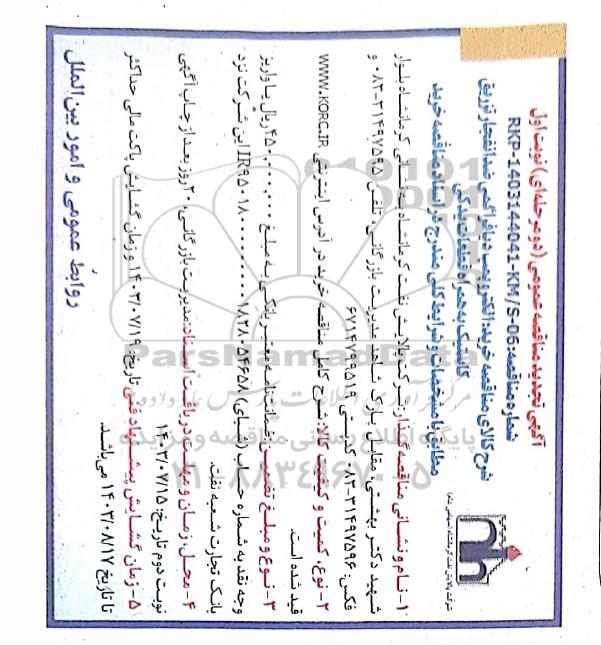 آگهی تجدید مناقصه عمومی (دو مرحله‌ای) نوبت اول
شماره مناقصه: RKP-1403144041-KM/S-06
شرح کالای مناقصه خرید: الکتروپمپ دیافراگمی ضد انفجار تزریق
کاستیک به همراه قطعات یدکی
مطالبه با مشخصات و شرایط کلی مندرج در اسناد مناقصه خرید
شرکت پالایش نفت کرمانشاه (سهامی عام)
۱- نام و نشانی مناقصه گذار: شرکت پالایش نفت کرمانشاه به نشانی کرمانشاه بلوار
شهید دکتر بهشتی، مقابل پارک شاهد، مدیریت بازرگانی، تلفن ۳۱۴۹۷۵۹۵-۰۸۳ و
فکس: ۳۱۴۹۷۵۹۶-۰۸۳ کدپستی ۶۷۱۴۷۹۹۵۱۹
۲- نوع، کمیت و کیفیت کالا: شرح کامل مناقصه خرید در آدرس اینترنتی WWW.KORC.IR
قید شده است.
۳- نوع و مبلغ تضمین: ضمانت‌نامه معتبر بانکی به مبلغ ۴۵۰,۰۰۰,۰۰۰ ریال یا واریز
وجه نقد به شماره حساب (شبای) این شرکت نزد
بانک تجارت شعبه نفت.
۴- محل، زمان و مهلت دریافت اسناد: مدیریت بازرگانی، ۲۰ روز بعد از چاپ آگهی
نوبت دوم تاریخ: ۱۴۰۳/۰۷/۱۵
۵- زمان گشایش پیشنهاد فنی تاریخ: ۱۴۰۳/۰۷/۱۹ و زمان گشایش پاکت مالی حداکثر
تا تاریخ ۱۴۰۳/۰۸/۱۷ می‌باشد.
روابط عمومی و امور بین الملل
ParsNamadData
پایگاه اطلاع رسانی مناقصه و مزایده
۰۲۱-۸۸۳۴۹۶۷۰-۵